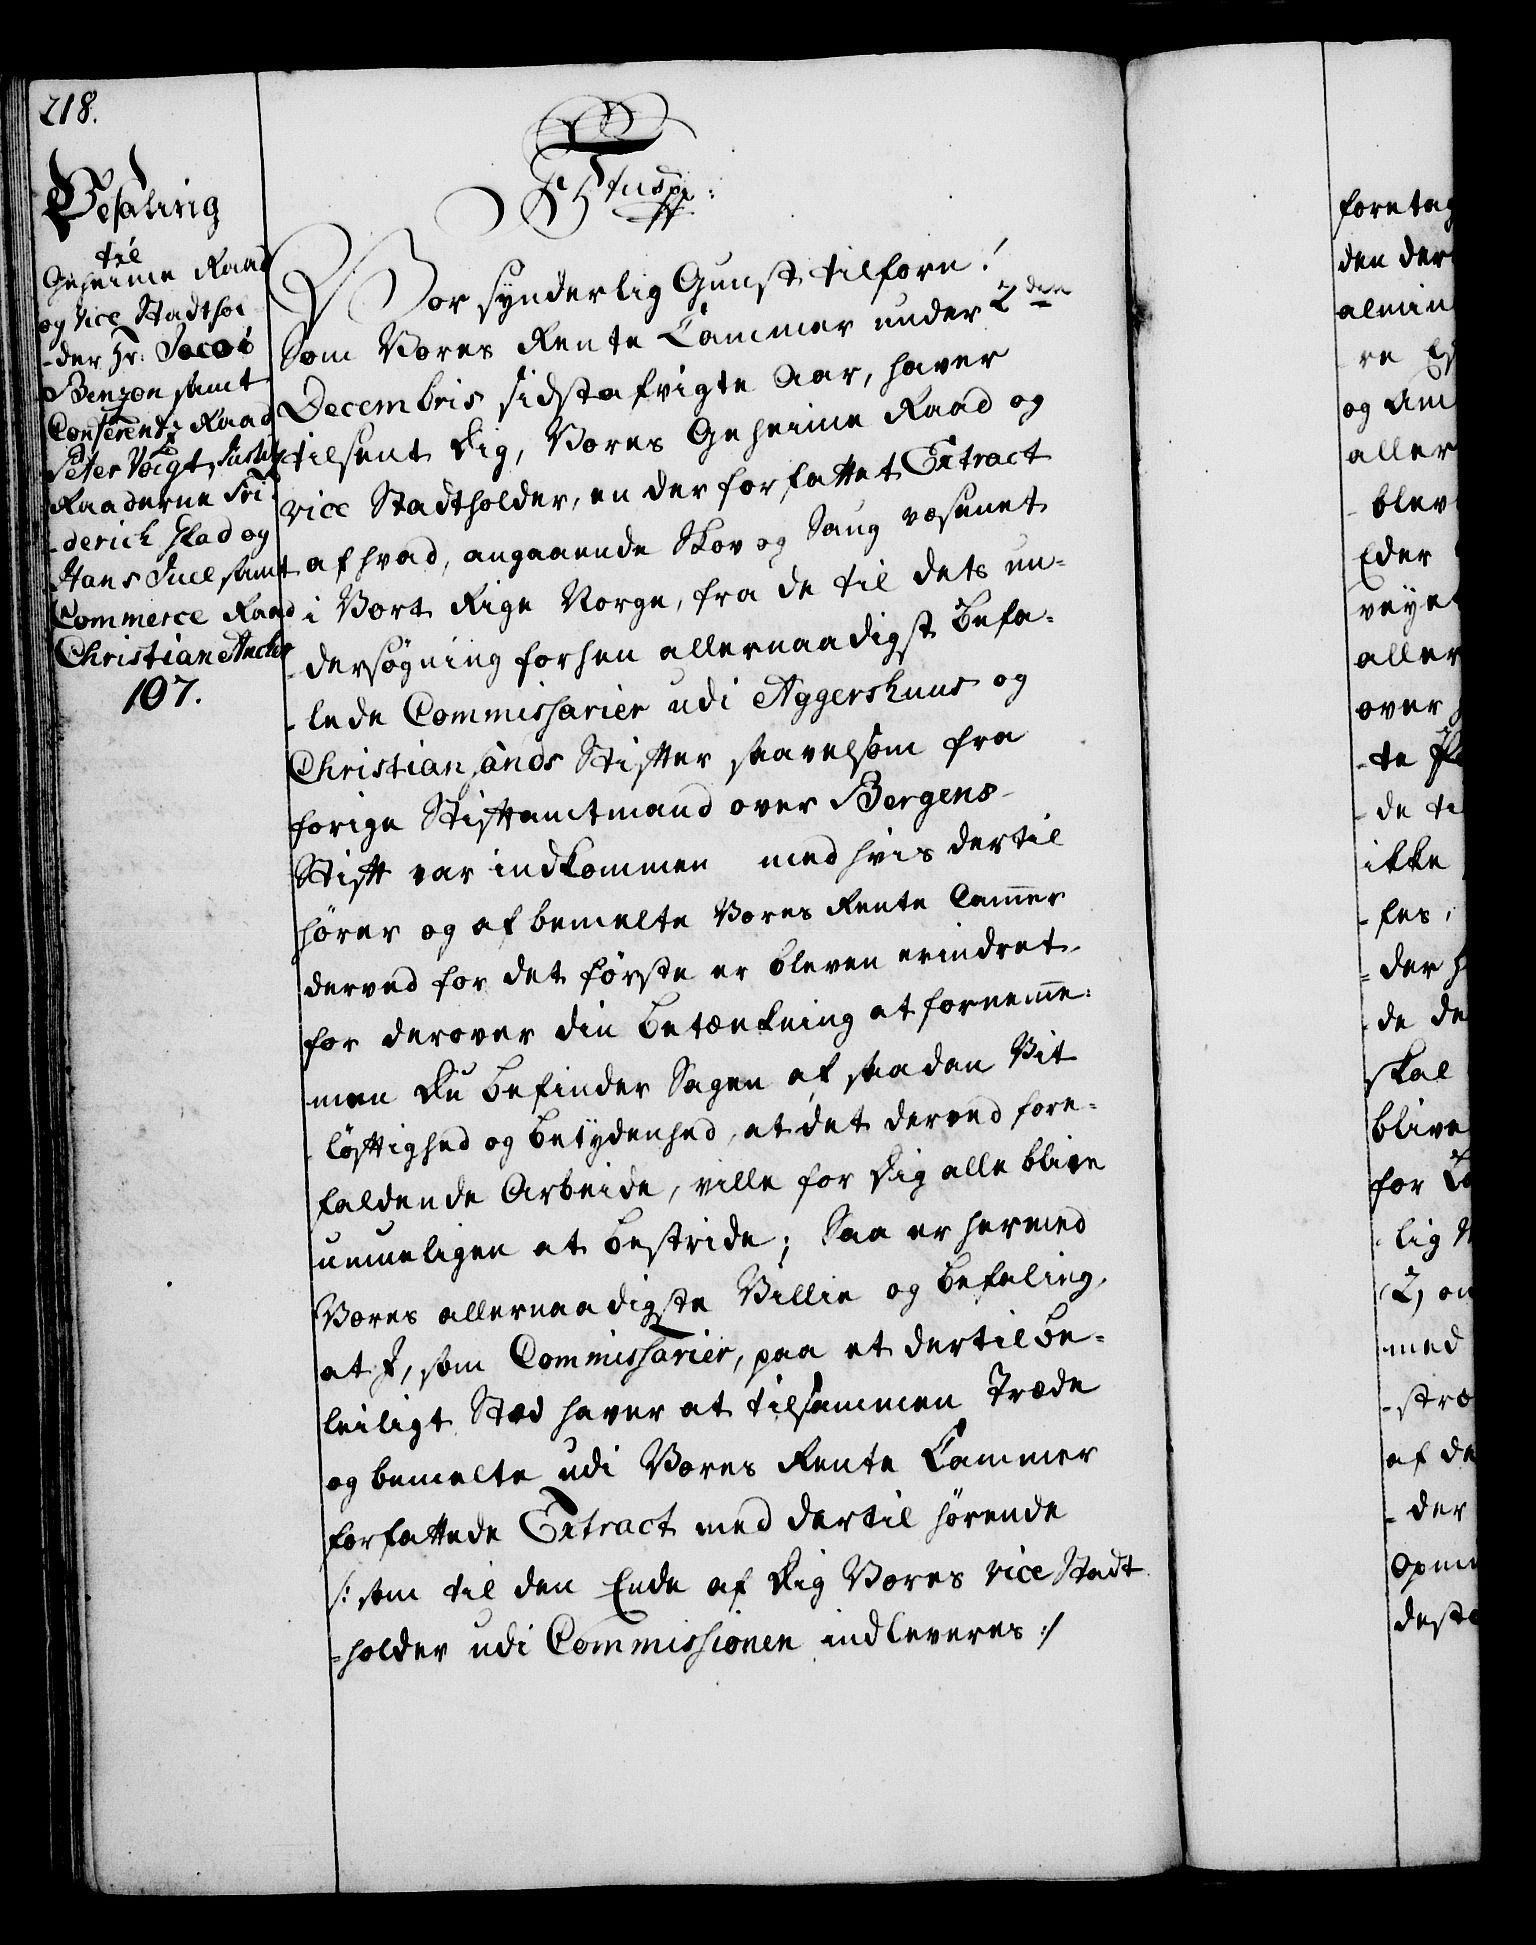 218.
Befaling
til
Geheime Raad
og vice Stadthol
-der Hr: Jacob
Benzon samt
Conferentz Raad
Peter Vogt, Justitz
Raaderne Fri
-derich
og
Hans Juel samt
Commerce Raad
Christian Ancher
107.
Vor synderlig Gunst tilforn!
Som Vores Rente Cammer under 2den
Decembris sidstafvigte Aar, haver
tilsent Dig, Vores Geheime Raad og
vice Stadtholder, en der forfattet Extract
af hvad, angaaende Skov og Saug væsenet
i Vort Rige Norge, fra de til dets un-
-dersøgning forhen allernaadigst befa-
-lede Commissarier udi Aggershuus og
Christiansands Stifter saavelsom fra
forige Stiftamtmand over Bergens
Stift var indkommen med hvis dertil
hører og af bemelte Vores Rente Cam̅er
derved for det første er bleven erindret
for derover din betænkning at fornem̅e:
men Du befinder Sagen af saadan Vit
løftighed og betydenhed, at det derved fore-
faldende Arbeide, ville for Dig alle blive
umueligen at bestride; Saa er hermed
Vores allernaadigste Villie og befaling,
at I, som Commissarier, paa et dertil be-
leiligt Stæd haver at tilsammen Træde
og bemelte udi Vores Rente Cammer
forfattede Extract med dertil hørende
/: som til den Ende af Dig Vores vice Stadt
-holder udi Commissionen indleveres :/
foretag
den der
almin
og Am
aller
blev
Eder
veyet
aller
over
-te
-de ti
ikke
-der
-de de
skal
blive
for
lig
(2, on
med
-stræ
af de
-der
Opmu
deste